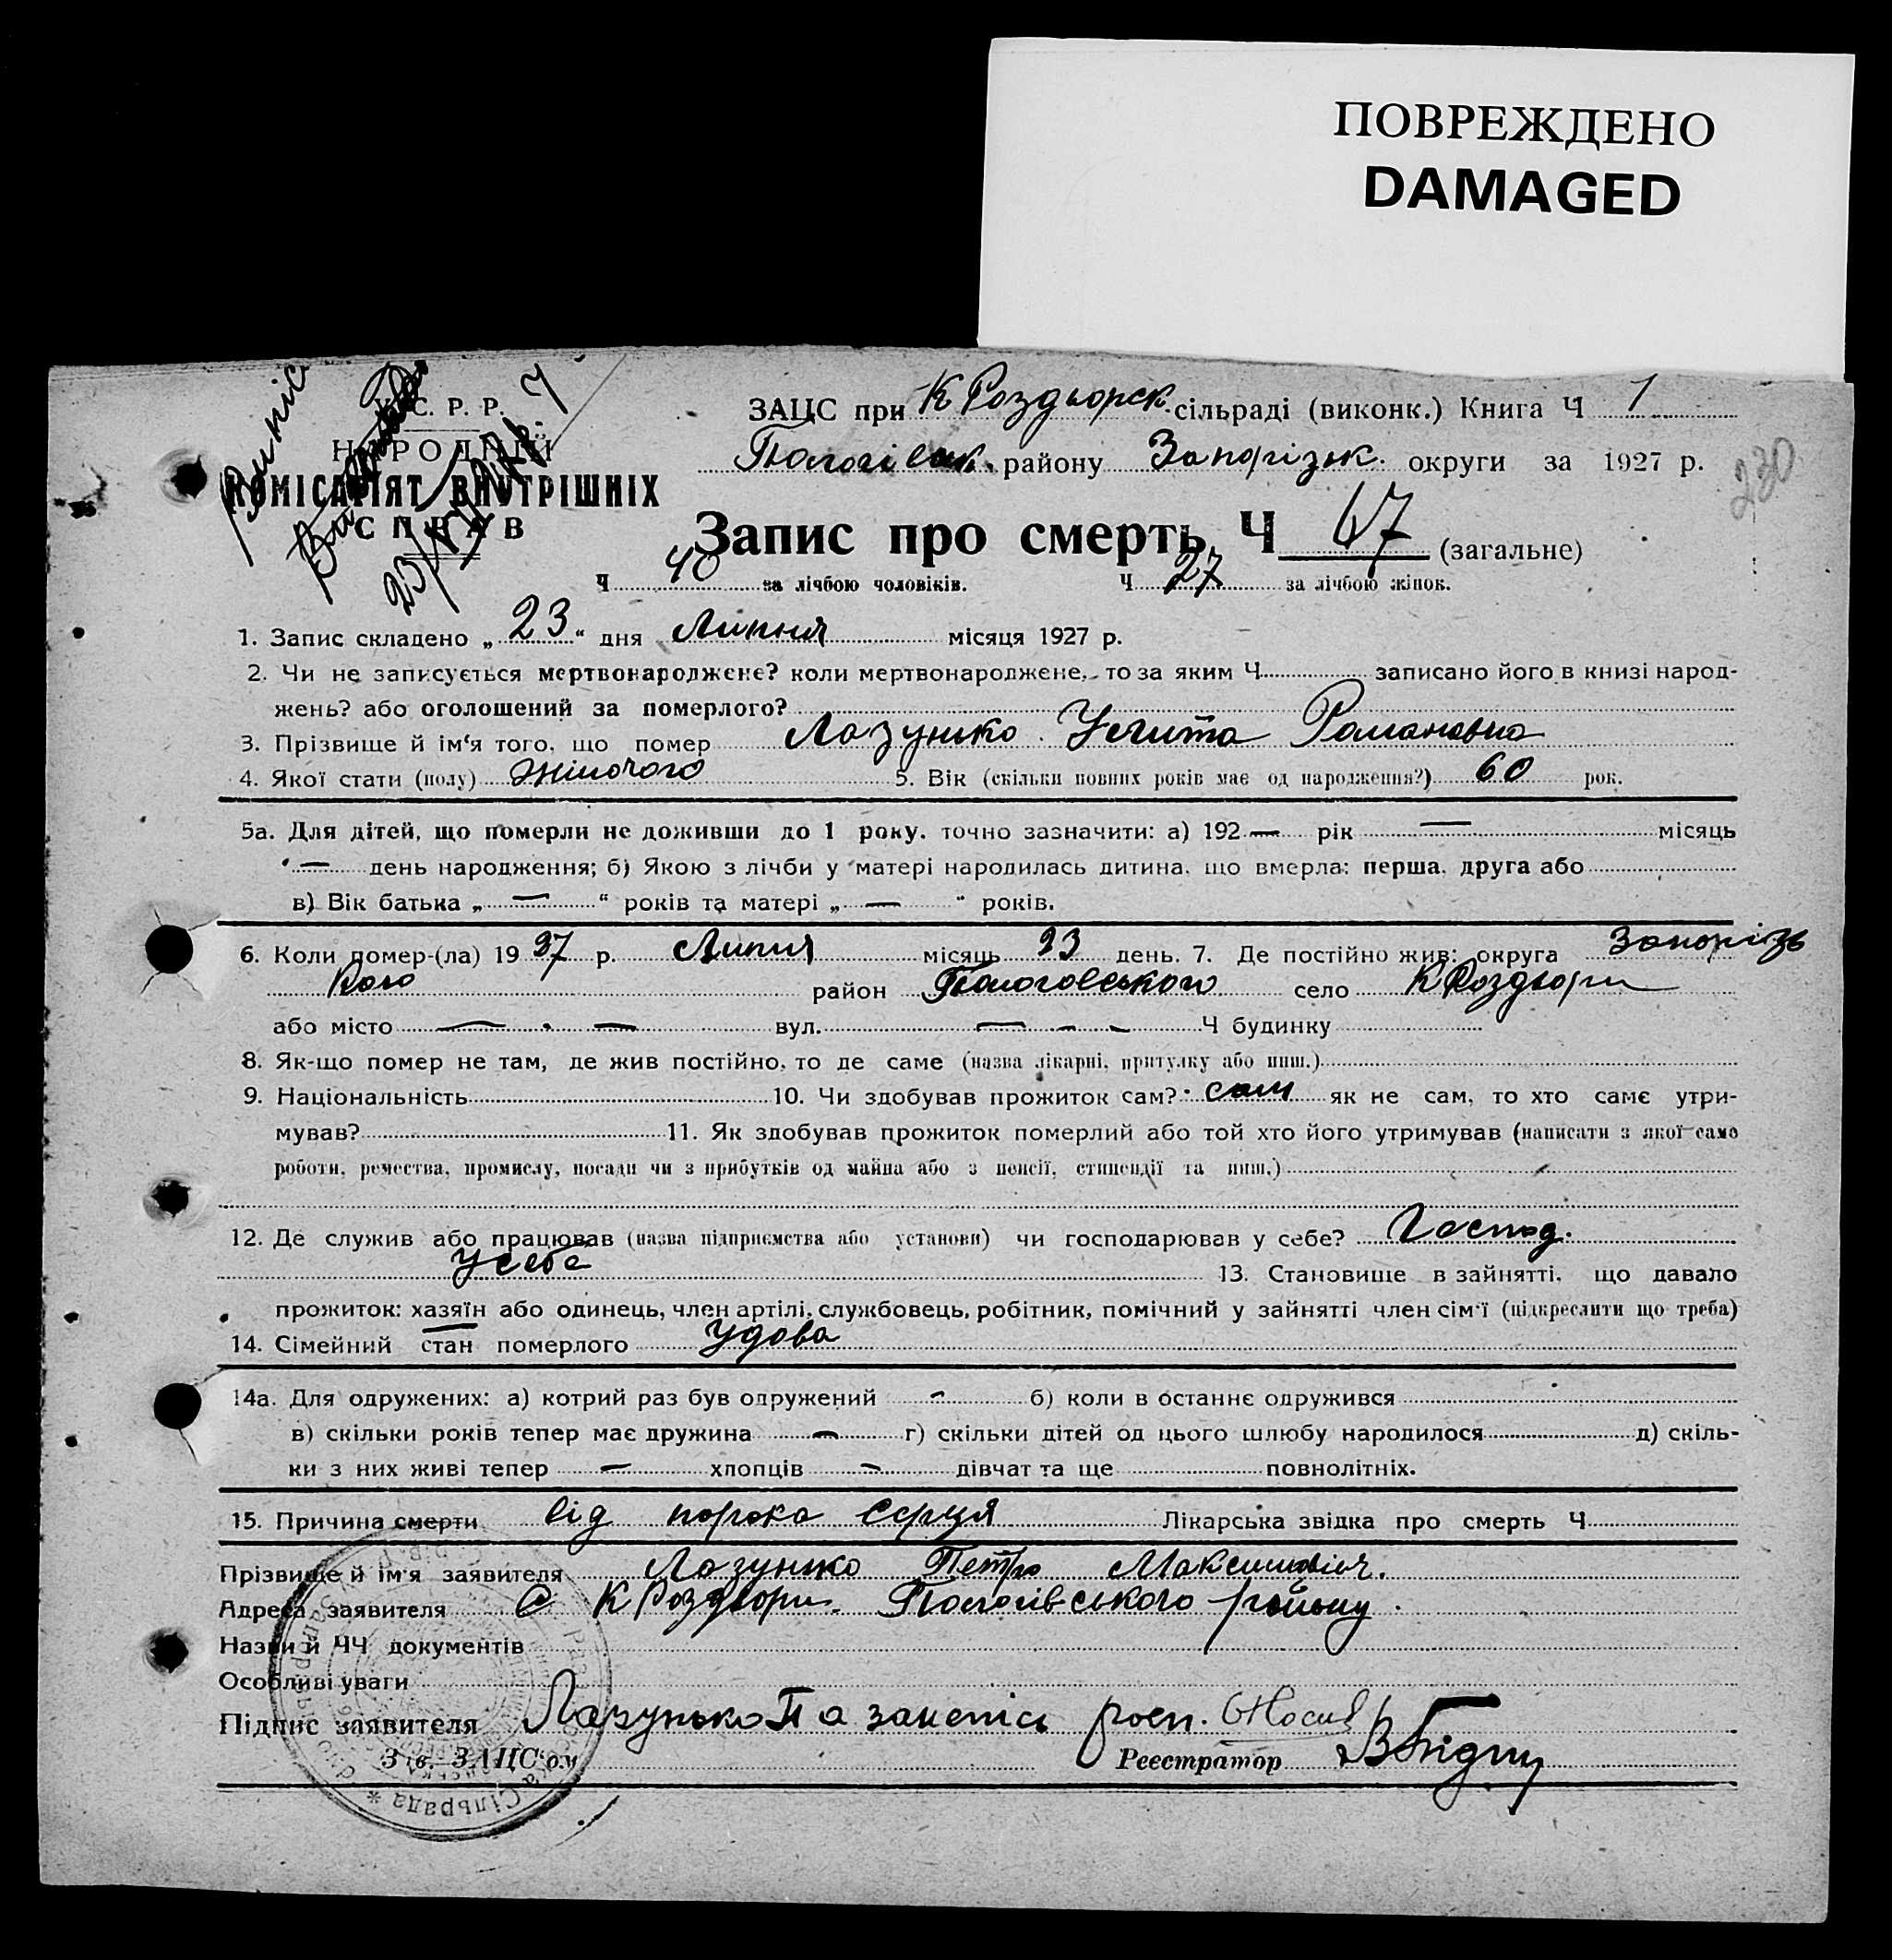 ПОВРЕЖДЕНО
DAMAGED
У. С. Р. Р.
НАРОДНІЙ
КОМІСАРІЯТ ВНУТРІШНІХ
СПРАВ
ЗАЦС при К Роздьорск. сільраді (виконк.) Книга Ч 1
Пологівськ. району Запорізьк. округи за 1927 р.
230
Запис про смерть Ч 67 (загальне)
Ч 40 за лічбою чоловіків. Ч 27 за лічбою жінок.
1. Запис складено „ 23 “ дня Липня місяця 1927 р.
2. Чи не записується мертвонароджене? коли мертвонароджене, то за яким Ч записано його в книзі народ-
жень? або оголошений за померлого?
3. Прізвище й ім‘я того, що помер Лазунько Романовна
4. Якої стати (полу) жіночого 5. Вік (скільки повних років має од народження?) 60 рок.
5а. Для дітей, що померли не доживши до 1 року. точно зазначити: а) 192 — рік — місяць
— день народження; б) Якою з лічби у матері народилась дитина, що вмерла: перша, друга або
в) Вік батька „ — “ років та матері „ — “ років.
6. Коли помер-(ла) 19 27 р. Липня місяць 23 день. 7. Де постійно жив: округа Запорізь
кого район Пологовського село К Роздьори
або місто — - — вул. — - - Ч будинку
8. Як-що помер не там, де жив постійно, то де саме (назва лікарні, притулку або инш.)
9. Національність 10. Чи здобував прожиток сам? сам як не сам, то хто саме утри-
мував? 11. Як здобував прожиток померлий або той хто його утримував (написати з якої само
роботи, ремества, промислу, посади чи з прибутків од майна або з пенсії, стипендії та инш.)
12. Де служив або працював (назва підприємства або установи) чи господарював у себе? Господ.
У себе 13. Становище в зайнятті, що давало
прожиток: хазяїн або одинець, член артілі, службовець, робітник, помічний у зайнятті член сім‘ї (підкреслити що треба)
14. Сімейний стан померлого Удова
14а. Для одружених: а) котрий раз був одружений - б) коли в останнє одружився
в) скільки років тепер має дружина — г) скільки дітей од цього шлюбу народилося д) скіль-
ки з них живі тепер — хлопців — дівчат та ще повнолітніх.
15. Причина смерти від порока серця Лікарська звідка про смерть Ч
Прізвище й ім‘я заявителя Лазунько Петро Максимович.
Адреса заявителя С К Роздвори Пологівського району.
Назви й ЧЧ документів
Особливі уваги
Підпис заявителя Лазунько П а
Зав. ЗАЦС‘ом Реєстратор